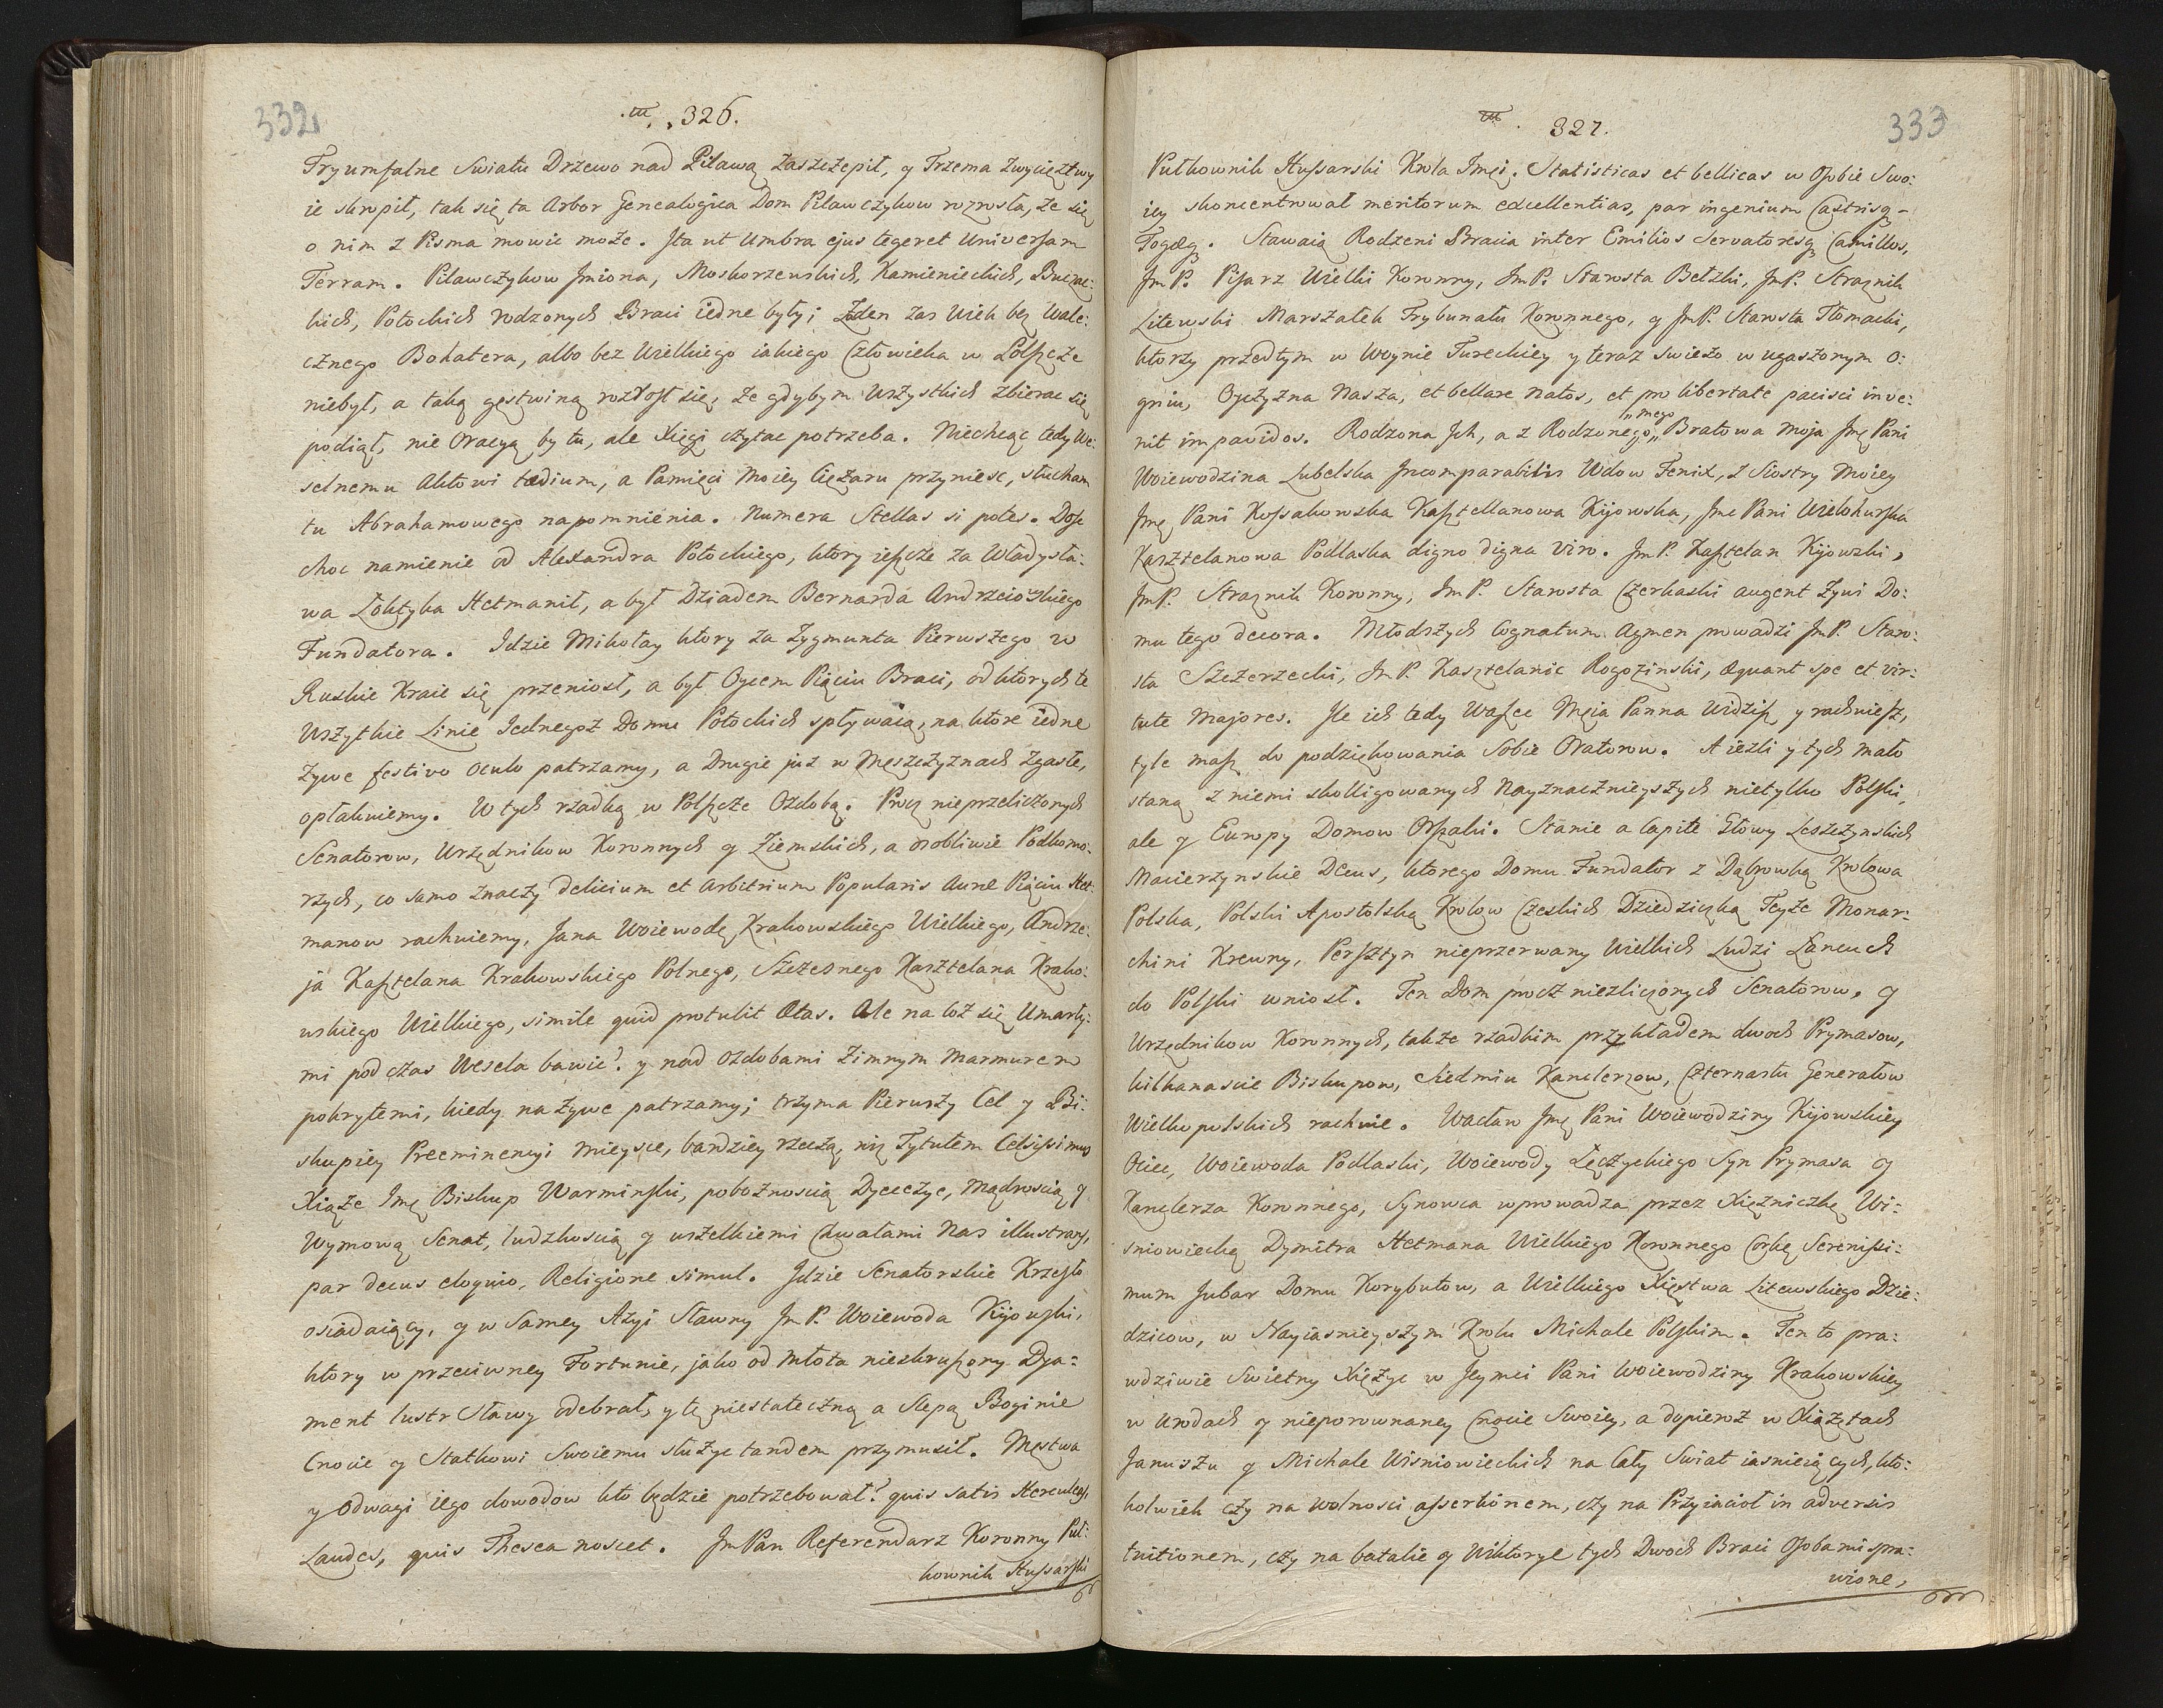 332
326.
Tryumfalne Swiatu Drzewo nad Pilawą zaszczepił, y Trzema zwycięztwy
ie skropił, tak się ta Arbor Genealogica Dom Pilawczykow rozrosła, że się
o nim z Pisma mowic może. Ita ut Umbra ejus tegeret Universam
Terram. Pilawczykow Imiona, Moskorzewskich, Kamienieckich, Buczac:
kich, Potockich rodzonych Braci iedne były; Żden zas Wiek bez Wale:
cznego Bohatera, albo bez Wielkiego iakiego Człowieka w Polszcze
niebył, a taką gęstwiną rozłosł się, że gdybym wszystkich zbierac się
podiął, nie Oracyą by tu, ale Xięgi czytac potrzeba. Niechcąc tedy We:
selnemu Aktowi tædium, a Pamięci moiey Ciężaru przyniesc, słucham
tu Abrahamowego napomnienia. Numera Stellas si potes. Dosc
choc namienie od Alexandra Potockiego, ktory ieszcze za Władysła:
wa Łoktyka Hetmanił, a był Dziadem Bernarda Andrzeiowskiego
Fundatora. Idzie Mikołay ktory za Zygmunta Pierwszego w
Ruskie Kraie się przeniosł, a był Oycem Piąciu Braci, od ktorych te
Wszytkie Linie Jednegoż Domu Potockich spływaią, na ktore iedne
żywe festivo oculo patrzamy, a Drugie już w Męszczyznach zgasłe,
opłakuiemy. W tych rzadką w Polszcze Ozdobą. Procz nieprzeliczonych
Senatorow, Urzędnikow Koronnych y Ziemskich, a osobliwie Podkomo:
rzych, co samo znaczy delicium et arbitrium Popularis Auræ Piąciu Het:
manow rachuiemy, Jana Woiewodę Krakowskiego Wielkiego, Andrze:
ja Kasztelana Krakowskiego Polnego, Szczesnego Kasztelana Krako:
wskiego Wielkiego, simile quid protulit Ætas. Ale na coż się Umarły:
mi podczas Wesela bawic? y nad ozdobami zimnym marmurem
pokrytemi, kiedy na żywe patrzamy; trzyma Pierwszy Cel y Bi:
skupiey Preeminencyi mieysce, bardziey rzeczą, niż Tytułem Celsissimus
Xiąże Imę Biskup Warminski, pobożnoscią Dyecezye, Mądroscią y
Wymową Senat, ludzkoscią y wszelkiemi Chwałami nas illustrans,
par decus eloquio, Religione simul. Idzie Senatorskie Krzesło
osiadaiący, y w Samey Azyi Sławny Im P. Woiewoda Kijowski,
ktory w przeciwney Fortunie, jako od młota nieskruszony Dya=
ment lustr Sławy odebrał, y tę niestateczną a Slepą Boginie
Cnocie y Statkowi Swoiemu służyc tandem przymusił. Męstwa
y Odwagi iego dowodow kto będzie potrzebował? quis satis Herculeas
Laudes, quis Thesea noscet. Im Pan Referendarz Koronny Puł:
kownik Hussarski
333
327.
Pułkownik Hussarski Krola Imci. Statisticas et bellicas w Osobie Swo:
iey skoncentrował meritorum excellentias, par ingenium Castrisq-
Togæq. Stawaią Rodzeni Bracia inter Emilios Servatoresq Camillos,
Im P. Pisarz Wielki Koronny, Im P. Starosta Bełzki, Im P. Strażnik
Litewski Marszałek Trybunału Koronnego, y Im P. Starosta Tłomacki,
ktorzy przedtym w Woynie Tureckiey y teraz swieżo w ugaszonym o:
gniu, Oyczyzna Nasza, et bellare natos, et pro libertate pacisci inve:
nit impavidos. Rodzona Ich, a z Rodzonego „mego„ Bratowa moja Imę Pani
Woiewodzina Lubelska Incomparabilis Wdow Fenix, z Siostry Moiey
Imę Pani Kossakowska Kasztellanowa Kijowska, Ime Pani Wielohurska
Kasztelanowa Podlaska digno digna viro. Im P. Kasztelan Kijowski,
Im P. Straznik Koronny, Im P. Starosta Czerkaski augent żywi Do:
mu tego decora. Młodszych Cognatum Agmen prowadzi Im P. Staro:
sta Szczerzecki, Im P. Kasztelanic Rogozinski, æquant spe et vir:
tute Majores. Ile ich tedy Wasce Mcia Panna widzisz y rachuiesz,
tyle masz do podziękowania Sobie Oratorow. A iezli y tych mało
staną z niemi skolligowanych Nayznacznieyszych nietylko Polski,
ale y Europy Domow Orszaki. Stanie a Capite Głowy Leszczynskich
Macierzynskie Decus, ktorego Domu Fundator z Dąbrowką Krolowa
Polska, Polski Apostolską Krolow Czeskich Dziedziczką Teyże Monar:
chini Krewny, Persztyn nieprzerwany Wielkich Ludzi Łancuch
do Polski wniosł. Ten Dom procz niezliczonych Senatorow, y
Urzędnikow Koronnych, także rzadkim przykładem dwoch Prymasow,
kilkanascie Biskupow, Siedmiu Kanclerzow, Czternastu Generałow
Wielkopolskich rachuie. Wacław Imę Pani Woiewodziny Kijowskiey
Ociec, Woiewoda Podlaski, Woiewody Łęczyckiego Syn Prymasa y
Kanclerza Koronnego, Synowca wprowadza przez Xiężniczkę Wi:
sniowiecką Dymitra Hetmana Wielkiego Koronnego Corkę Serenissi:
mum Jubar Domu Korybutow, a Wielkiego Xięstwa Litewskiego Dzie:
dzicow, w Nayiasnieyszym Krolu Michale Polskim. Ten to pra:
wdziwie Swietny Xiężyc w Jeymci Pani Woiewodziny Krakowskiey
w Urodach y nieporownaney Cnocie Swoiey, a dopieroż w Xiążętach
Januszu y Michale Wisniowieckich na Cały Swiat iasnieiących, kto:
kolwiek czy na wolnosci assertionem, czy na Przyiacioł in adversis
tuitionem, czy na batalie y Wiktorye tych Dwoch Braci Osobami spra:
wione,